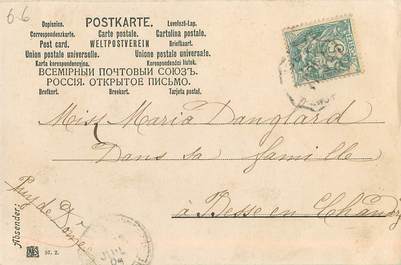 66
POSTKARTE.
Dopisnice. Carte postale. Levelezö-Lap.
Correspondenzkarte. Cartolina postale.
Post card. WELTPOSTVEREIN Briefkaart.
Union postale universelle. Unione postale universale.
Karta korespondencyjna. Korespondenční listek.
ВСЕМІРНЫЙ ПОЧТОВЫЙ СОЮЗЪ.
РОССІЯ. ОТКРЫТОЕ ПИСЬМО.
Brefkort. Brevkort. Tarjeta postal.
Miss Maria Danglard
Dans sa famille
à Besse en Chandesse
Puy de Dôme
Absender: